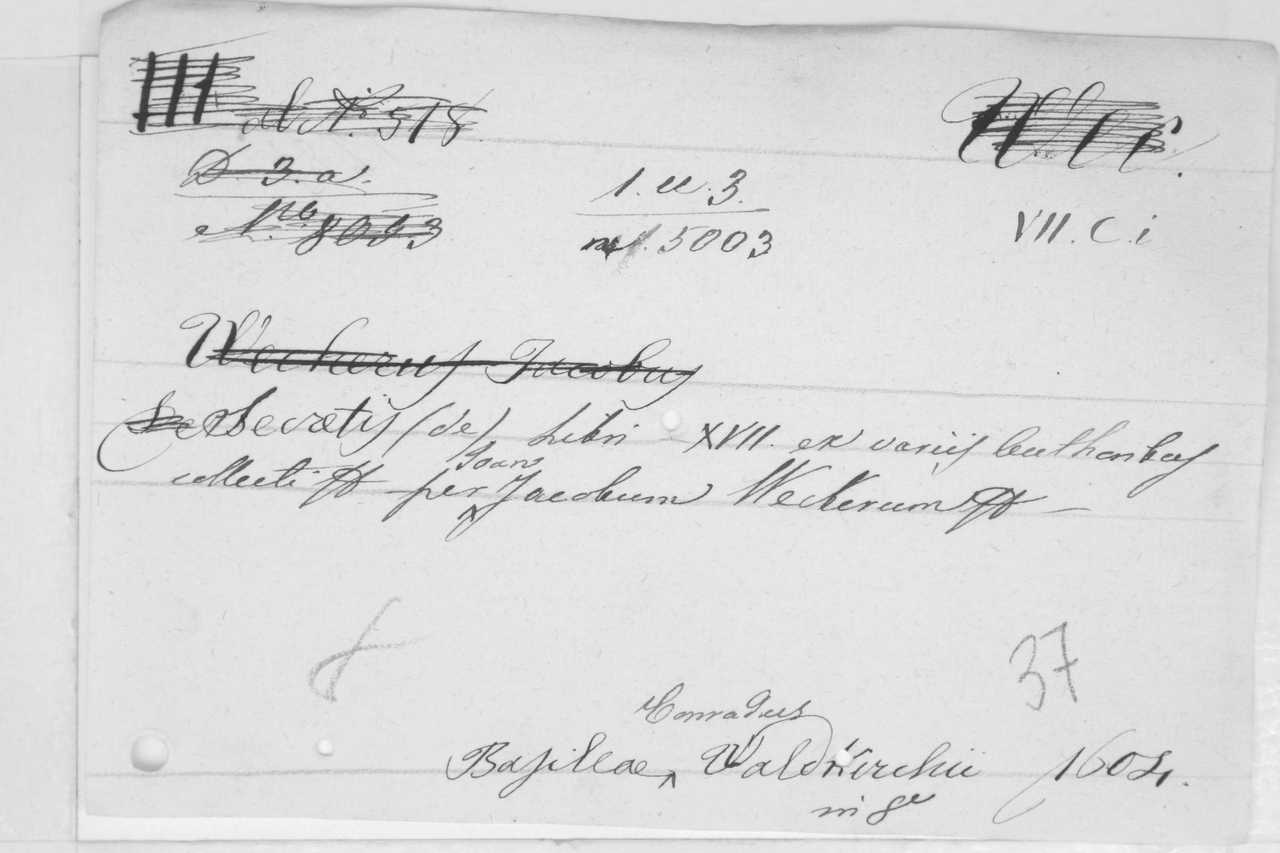 III ad N. 518
D. 3. a.
No. 8093
1. u. 3.
5003
VII. C. i
Weckerus Jacobus
De Secretis (de) Libri XVII. ex variis Authoribus
Joan
collecti per Jacobum Weckerum
8
37
Conradus
Basileae, Waldkirchii 1604.
in 8º